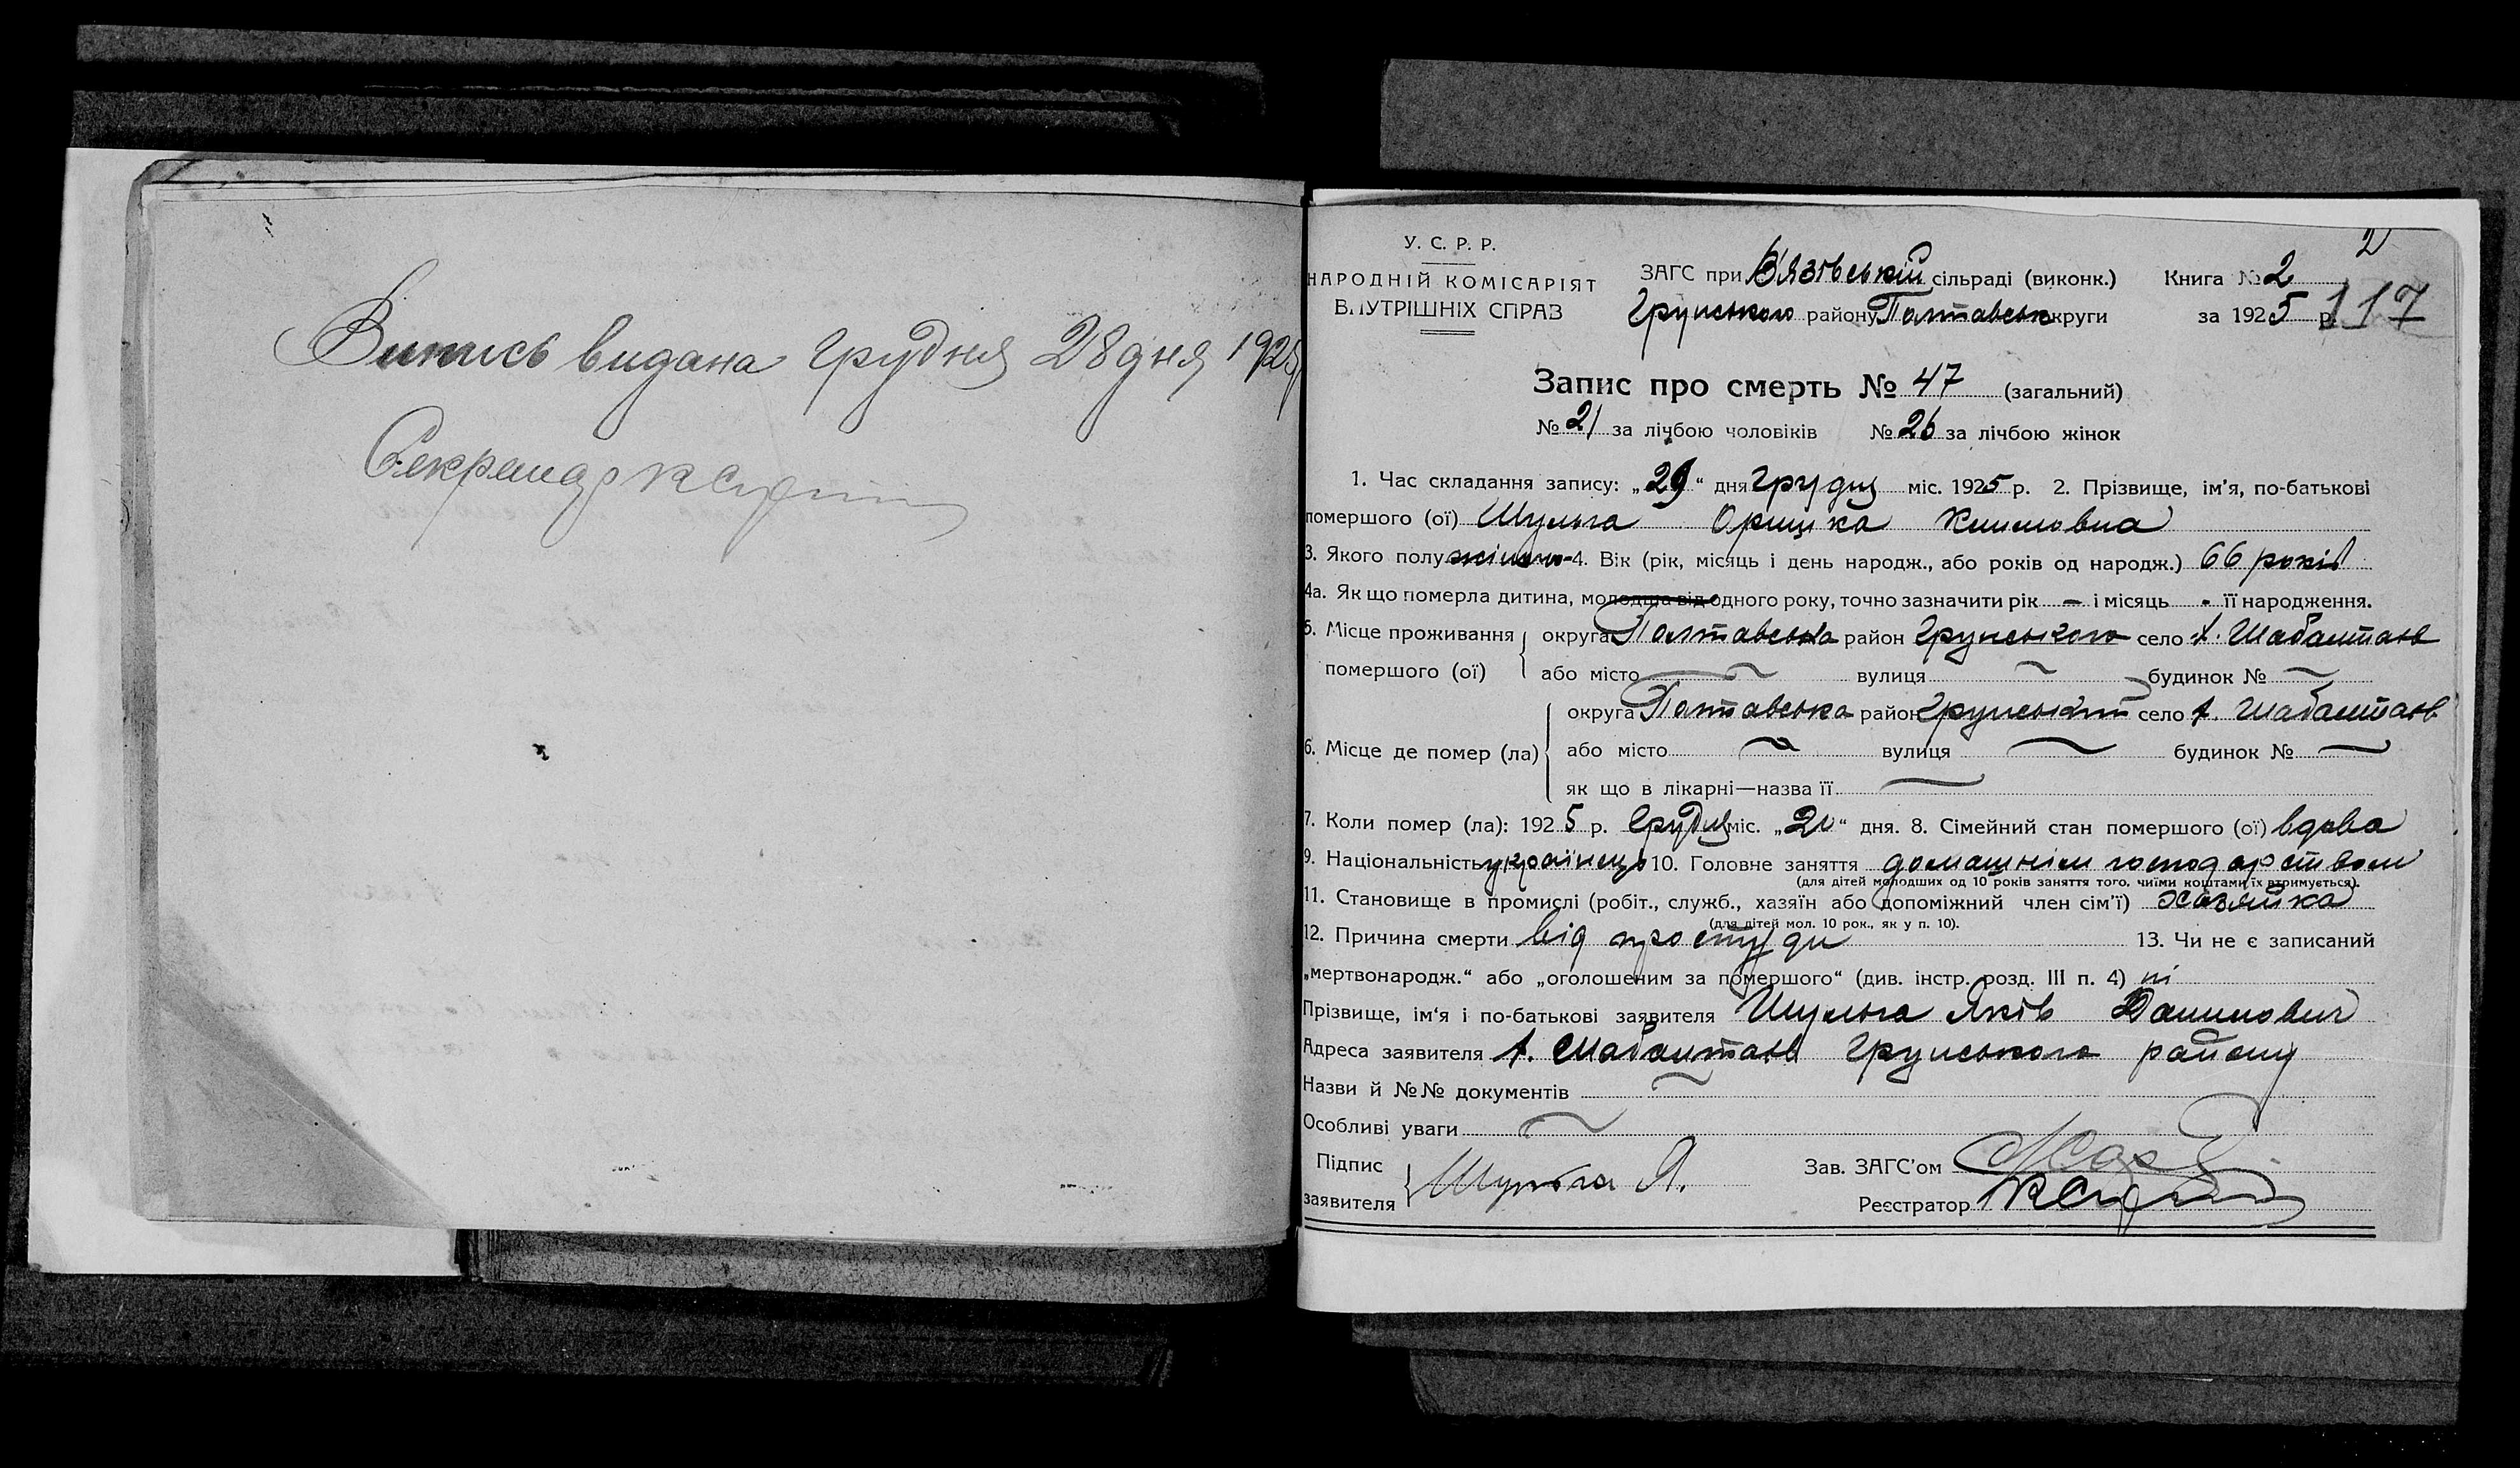 Випись видана грудня 28 дня 1925
Секретар
2
У. С. Р. Р.
НАРОДНІЙ КОМІСАРІЯТ
ВНУТРІШНІХ СПРАВ
ЗАГС при В'язівській сільраді (виконк.) Книга № 2
Грунського району Полтавськ округи за 1925 р. 117
Запис про смерть № 47 (загальний)
№ 21 за лічбою чоловіків № 26 за лічбою жінок
1. Час складання запису: „29“ дня грудня міс. 1925 р. 2. Прізвище, ім'я, по-батькові
помершого (ої) Шульга Оришка Климовна
3. Якого полу жіночо- 4. Вік (рік, місяць і день народж., або років од народж.) 66 років
4а. Як що померла дитина, молодша від одного року, точно зазначити рік — і місяць - її народження.
5. Місце проживання округа Полтавська район Грунського село х.
помершого (ої) або місто ~ вулиця ~ будинок № ~
округа Полтавська район Грунський село х.
6. Місце де помер (ла) або місто ~ вулиця ~ будинок № ~
як що в лікарні—назва її ~
7. Коли помер (ла): 1925 р. грудня міс. „20“ дня. 8. Сімейний стан помершого (ої) вдова
9. Національність українець 10. Головне заняття домашнім господарством
(для дітей молодших од 10 років заняття того, чиїми коштами їх втримується).
11. Становище в промислі (робіт., служб., хазяїн або допоміжний член сім'ї) хазяйка
(для дітей мол. 10 рок., як у п. 10).
12. Причина смерти від простуди 13. Чи не є записаний
„мертвонародж.“ або „оголошеним за помершого“ (див. інстр. розд. III п. 4) ні
Прізвище, ім'я і по-батькові заявителя Шульга Яків Данилович
Адреса заявителя х. Грунського району
Назви й №№ документів ~
Особливі уваги ~
Підпис
заявителя Шульга Я.
Зав. ЗАГС'ом
Реєстратор